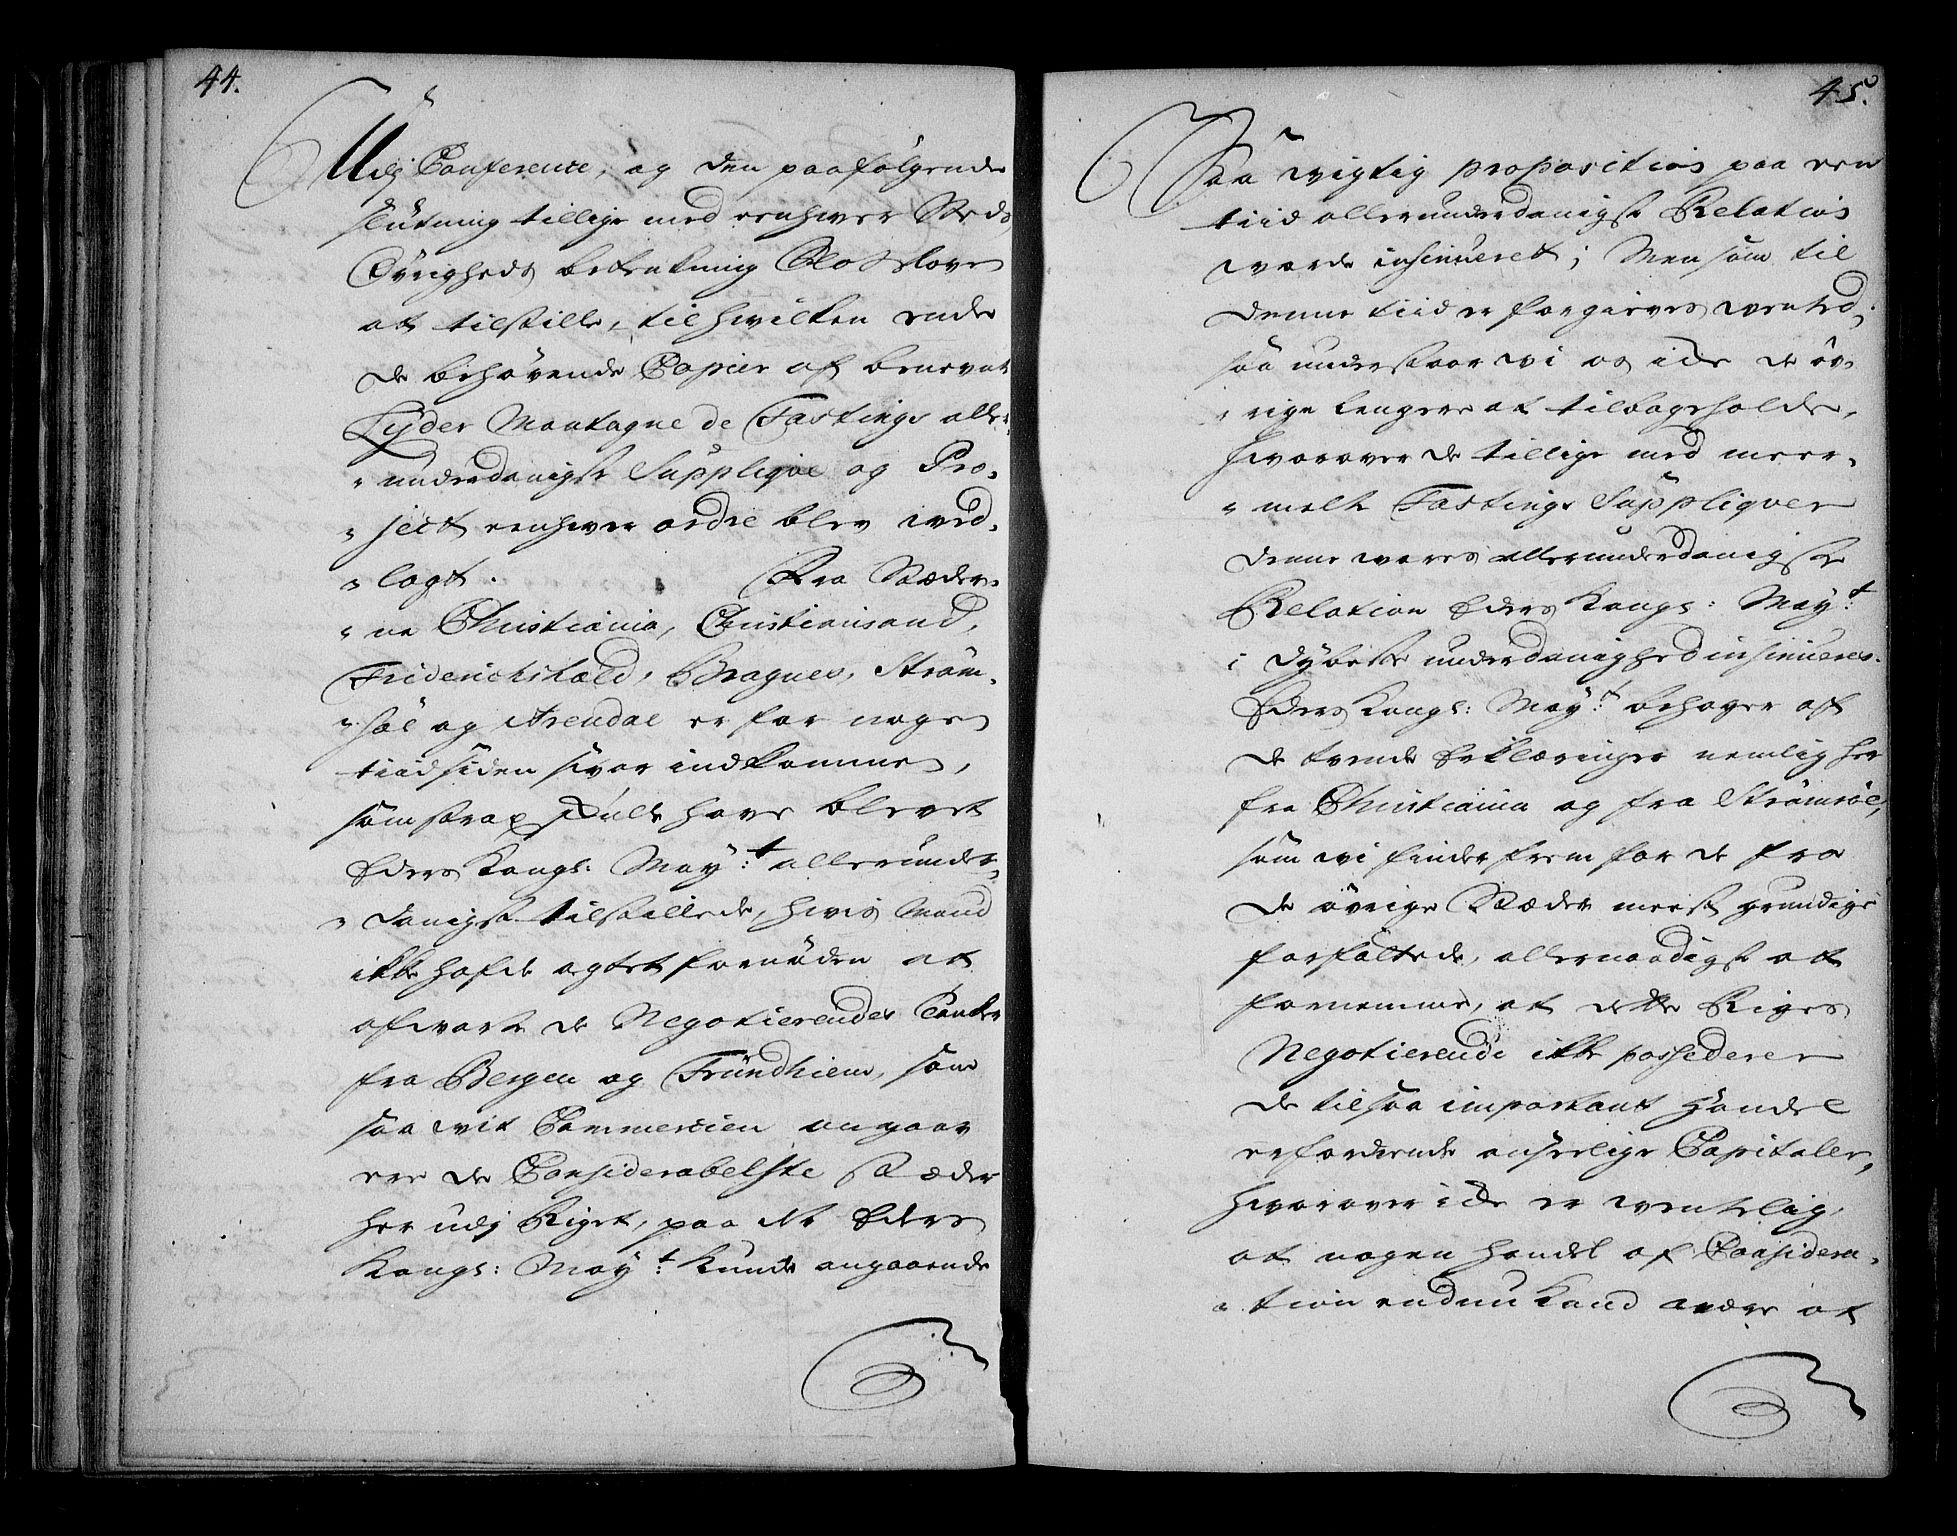 44.
Udj Conference, og den paafølgende
slutning tillige med eenhver Steds
Øvrigheds betenkning Os Slotsloven
at tilstille, til hvilken ende
de behøvende Copier af benevnte
Lyder Montagne de Fastings aller„
„underdanigste Suppliqve og Pro„
„ject eenhver ordre blev ved„
„lagt. Fra Stæder„
„ne Christiania, Christiansand,
Friderichshald, Bragnes, Strøm„
„søe og Arendal er for nogen
tiid siden svar indkommen,
som strax skulle have blevet
Eders Kongl: May.t allerunder„
„danigst tilstillede, hvis mand
ikke hafde agtet fornøden at
afvarte de Negotierendes Tanker
fra Bergen og Trundhiem, som
saa vit Commercien angaar
ere de Considerabelste Stæder
her udj Riget, paa det Eders
Kongl: May.t kunde angaaende
45.
Saa vigtig proposition paa een
tiid allerunderdanigst Relation
vorde insinueret; Men som til
denne tiid er forgieves ventet,
saa understaar vi os icke de øv„
„rige lengere at tilbageholde,
hvorover de tillige med meer„
„melte Fastings Suppliqver
denne vores allerunderdanigste
Relation Eders Kongl: May.t
i dybeste underdanighed insinueres.
Eders Kongl: May.t behager af
de tvende Erklæringer nemlig her
fra Christiania og fra Strømsøe,
som vi finder frem for de fra
de øvrige Stæder meest grundige
forfattede, allernaadigst at
fornemme, at dette Riges
Negotierende ikke possederer
de til saa important Handel
erfordrende anseelige Capitaler,
hvorover icke er ventelig,
at nogen handel af Considera„
„tion endnu kand ... at